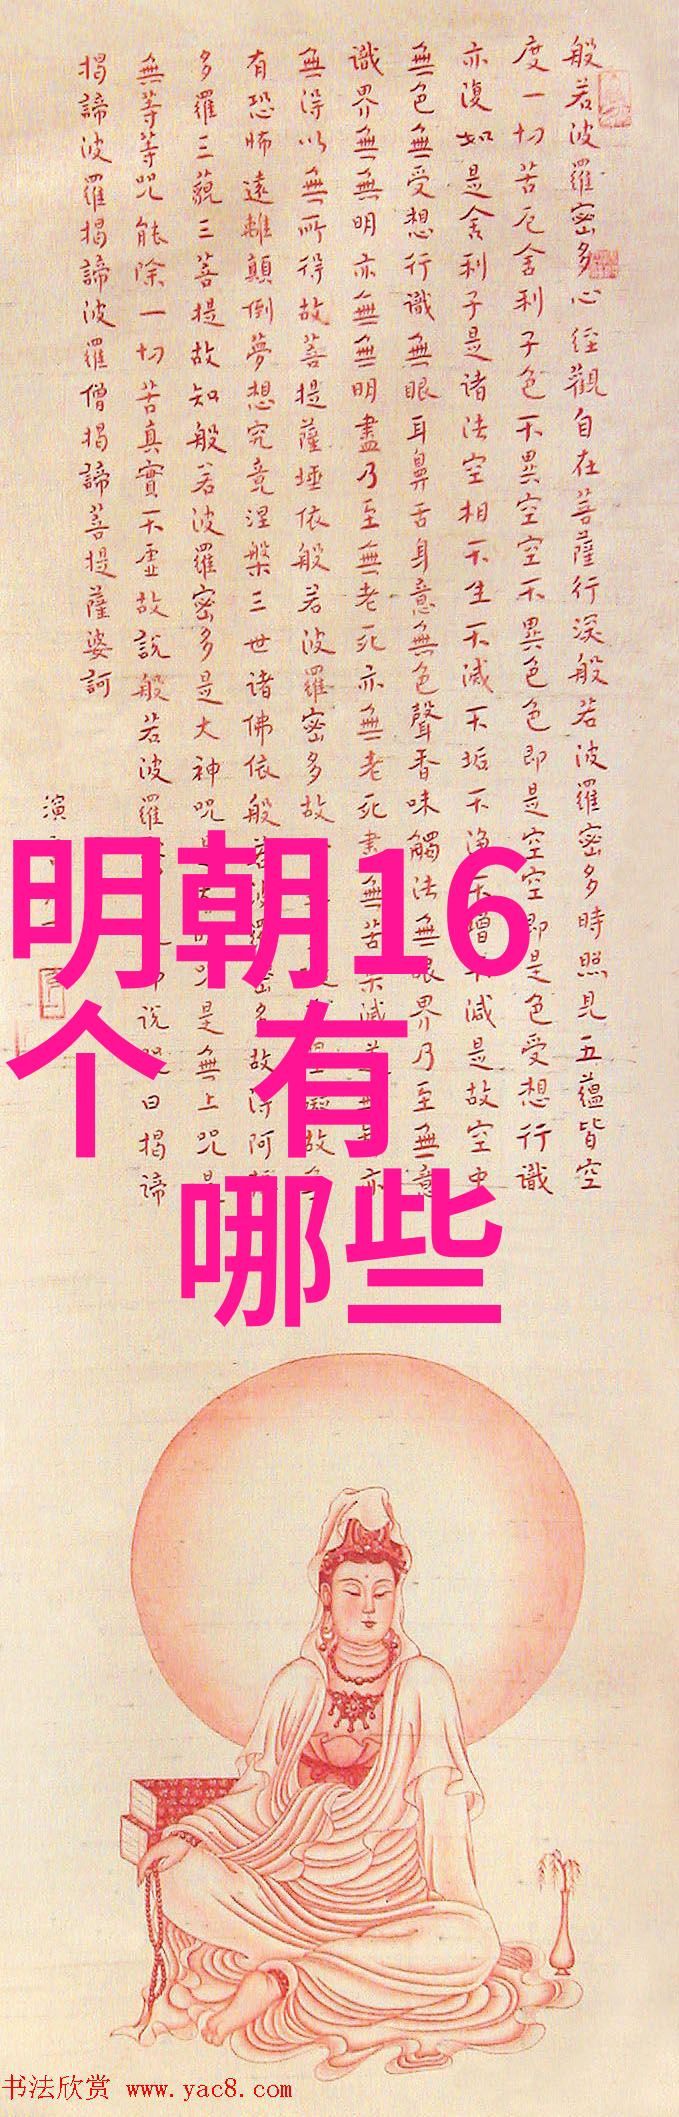 般若波羅密多心经觀自在菩薩行深般若波羅密多時照見五蕴皆空
度一切苦厄舍利子色不異空空不異色色即是空空即是色受想行識
亦復如是舍利子是诸法空相不生不滅不垢不净不增不減是故空中
無色無受想行識無眼耳鼻舌身意無色聲香味觸法無眼界乃至無意
識界無無明亦無無明盡乃至無老死亦無老死盡無苦集滅道無亦
無得以無所得故菩提薩埵依般若波羅密多故
有恐怖遠離顛倒夢想究竟涅槃三世诸佛依般若波羅密多故得阿
多羅三藐三菩提故知般若波羅密多是大神咒是咒是無上咒是
無等等咒能除一切苦真實不虚故説般若波羅即説咒曰揭諦
揭諦波羅揭諦波羅僧揭諦菩提薩婆訶
演
明朝16
个 有
哪些
书法欣赏 www.yac8.com